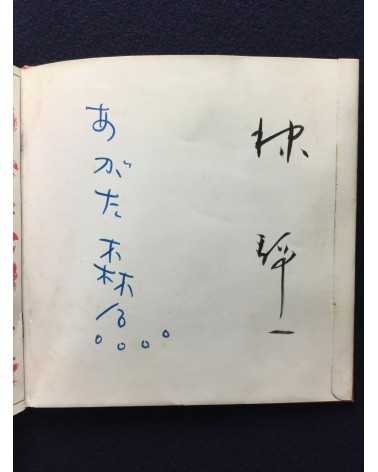 林静一
あがた森魚